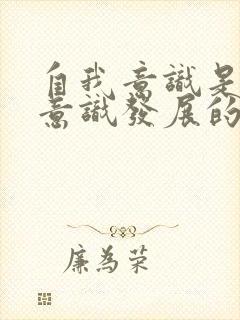 自我意識是
意識發展的
廉為榮